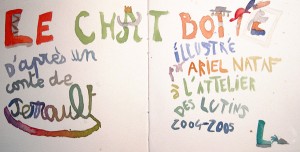 LE CHAT BOTTÉ
D'après un
conte de
Perrault
ILLUSTRÉ
par ARIEL NATAF
à L'ATTELIER
DES LUTINS
2004-2005